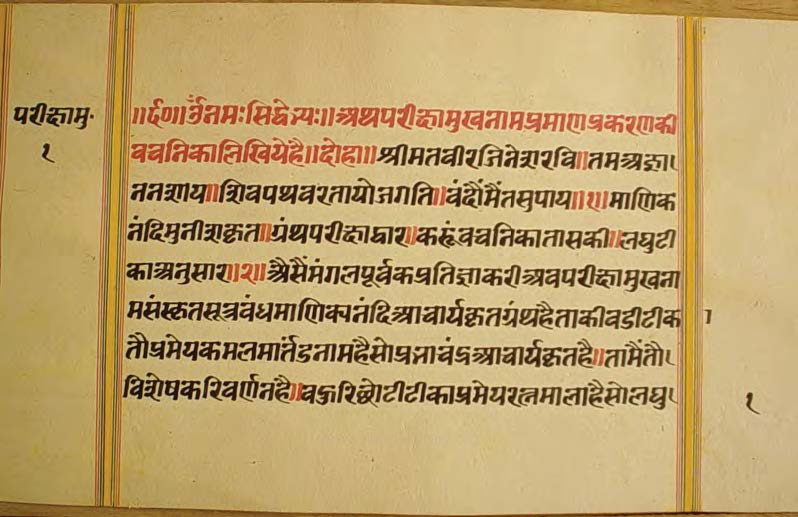 परीक्षामु॰
१
॥र्द०॥र्उंनमःसिद्धेभ्यः॥अथपरीक्षामुखनामप्रमाणप्रकरणकी
वचनिकालिखियेहै॥दोहा॥श्रीमतवीरजिनेशरवि॥तमअज्ञा।
ननशाय॥शिवपथवरतायोजगति॥वंदौंमैंतसुपाय॥१॥माणिक
नंदिमुनीशकृत॥ग्रंथपरीक्षाद्वार॥करूंवचनिकातासकी॥लघुटी
काअनुसार॥२॥ऐसैंमंगलपूर्वकप्रतिज्ञाकरीअवपरीक्षामुखना
मसंस्कृतसूत्रवंधमाणिक्यनंदिआचार्यकृतग्रंथहैताकीवडीटीक
ा
तौप्रमेयकमलमार्तंडनामहैसोप्रभाचंद्रआचार्यकृतहै॥तामैंतौ।
विशेषकरिवर्णनहै॥वहुरिछोटीटीकाप्रमेयरत्नमालाहैसोलघु।
१